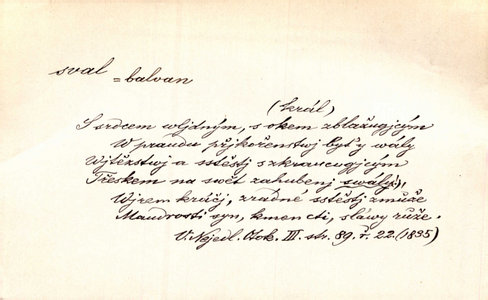 sval
= balvan
(král)
S srdcem wljdným, s okem zblažugjcým
W praudu přjkořenstwj byť y wály
Wjtězstwj a sstěstj s zkrwawugjcým
Třeskem na swět zahubenj swály,
Wjrem kráčj, zradné sstěstj zmůže
Maudrosti syn, kmen cti, sláwy růže.
V. Nejedl. Otok. III. str. 89. ř. 22. (1835)